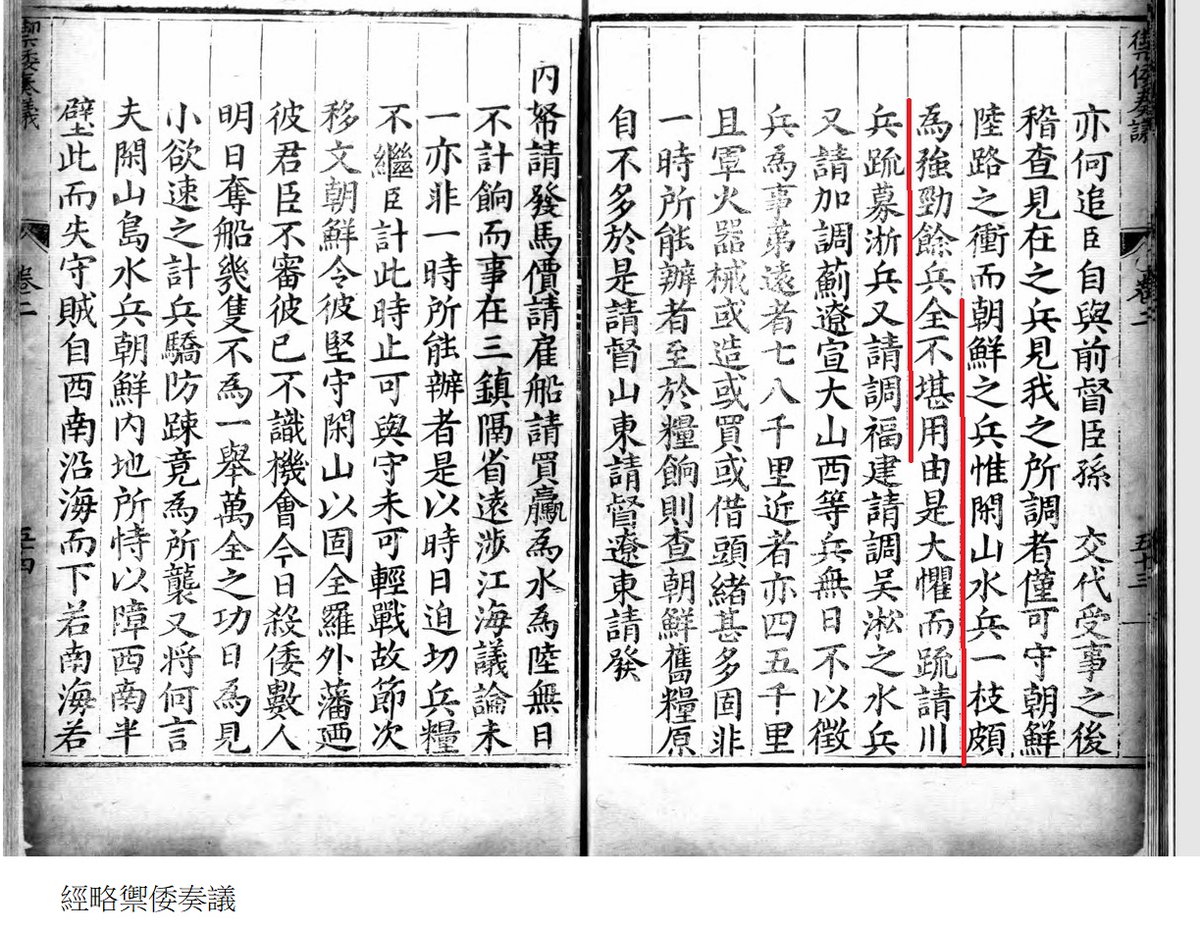 禦倭奏議
卷二
五十三
亦何追臣自與前督臣孫　交代受事之後
稽查見在之兵見我之所調者僅可守朝鮮
陸路之衝而朝鮮之兵惟閑山水兵一枝頗
為強勁餘兵全不堪用由是大懼而疏請川
兵疏募浙兵又請調福建請調吳淞之水兵
又請加調薊遼宣大山西等兵無日不以徵
兵為事第遠者七八千里近者亦四五千里
且軍火器械或造或買或借頭緒甚多固非
一時所能辦者至於糧餉則查朝鮮舊糧原
自不多於是請督山東請督遼東請發
內帑請發馬價請雇船請買驘為水為陸無日
不計餉而事在三鎮隔省遠涉江海議論未
一亦非一時所能辦者是以時日迫切兵糧
不繼臣計此時止可與守未可輕戰故節次
移文朝鮮令彼堅守閑山以固全羅外藩迺
彼君臣不審彼已不識機會今日殺倭數人
明日奪船幾隻不為一舉萬全之功日為見
小欲速之計兵驕防踈竟為所襲又將何言
夫閑山島水兵朝鮮內地所恃以障西南半
壁此而失守賊自西南沿海而下若南海若
禦倭奏議
卷二
五十四
經略禦倭奏議